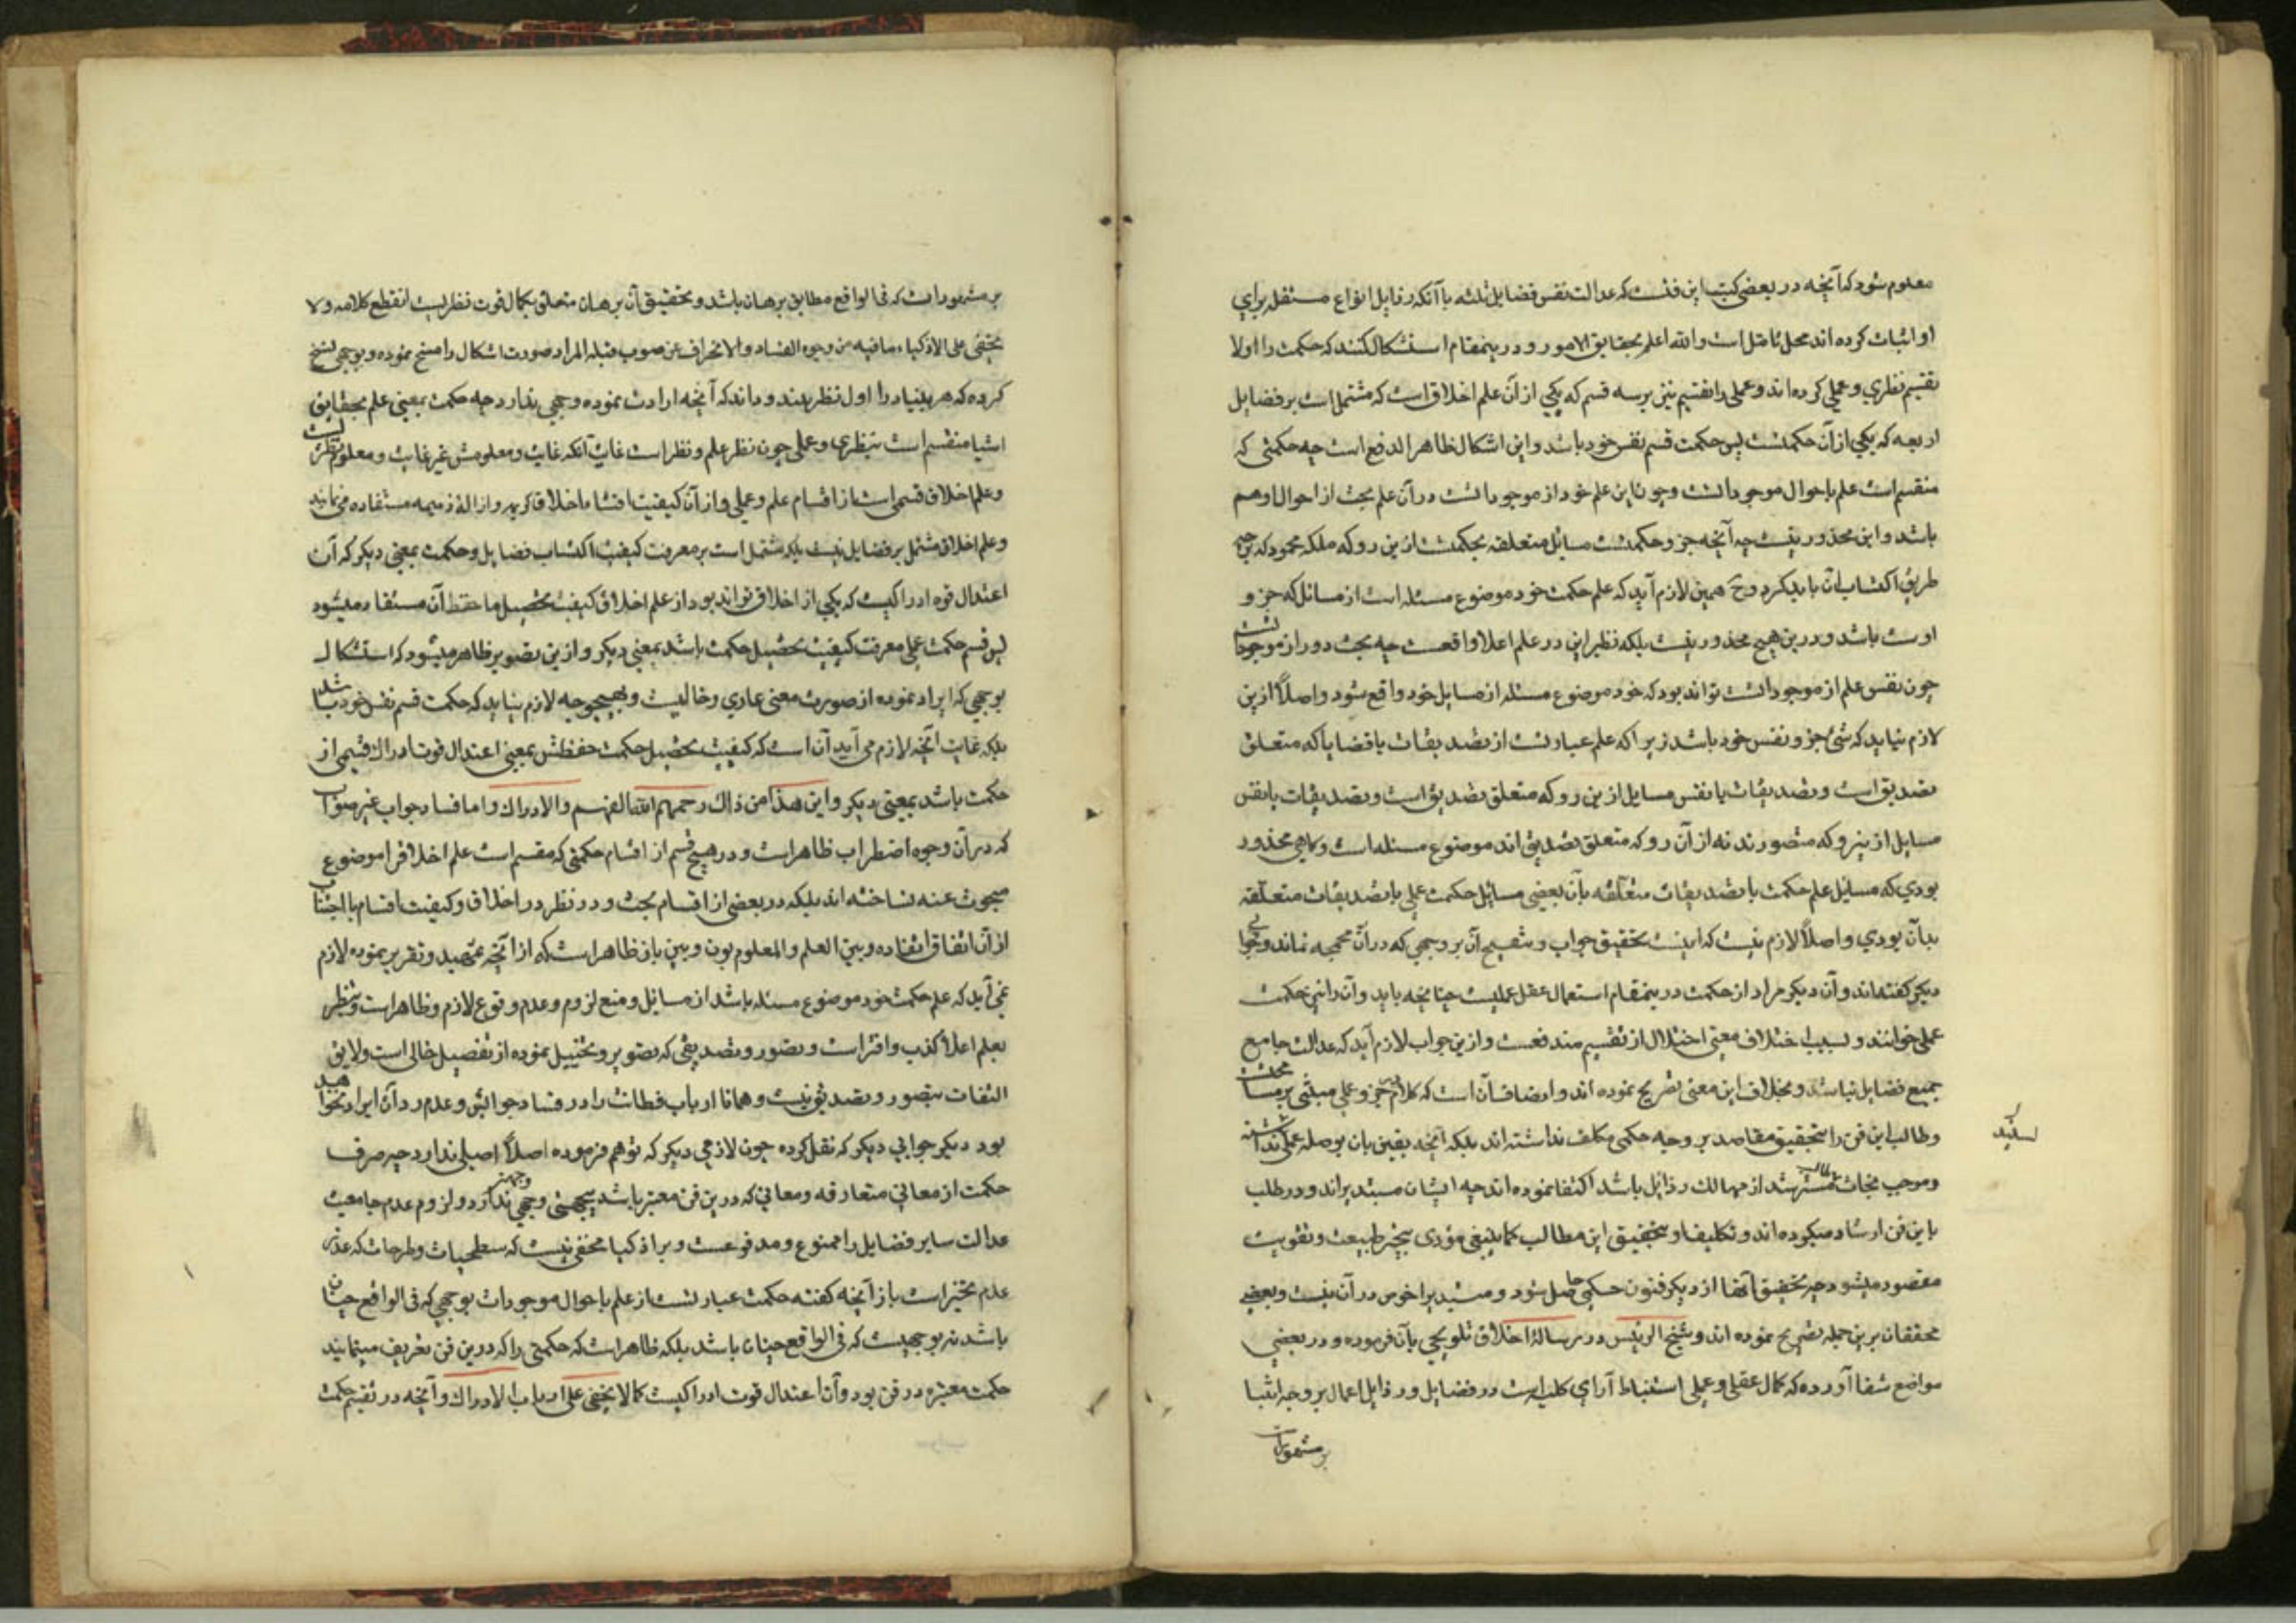 معلوم شود که آنچه در بعضی کتب این فنست که عدالت نفس فضایل ثلثه با آنکه رذایل انواع مستقله برای
او اثبات کرده اند محل تامّل است والله اعلم بحقایق الامور و درینمقام استشکال کنند که حکمت را اولا
تقسیم نظری و عملی کرده اند و عملی را تقسیم نیز بر سه قسم که یکی از آن علم اخلاق است که مشتمل است بر فضایل
اربعه که یکی از آن حکمتست پس حکمت قسم نفس خود باشد و این اشکال ظاهر الدفع است چه حکمتی که
منقسم است علم باحوال موجوداتست و چون این علم خود از موجوداتست در آن علم بحث از احوال او هم
باشد و این محذور نیست چه آنچه جزو حکمتست مسایل متعلقه بحکمتست از این رو که ملکه محموده
طریق اکتساب آن باید کرد و ح همین لازم آید که علم حکمت خود موضوع مسئله است از مسائل که جزو
اوست باشد و درین هیچ محذور نیست بلکه نظیر این در علم اعلا واقعست چه بحث درو از موجوداتست
چون نفس علم از موجوداتست تواند بود که خود موضوع مسئله از مسایل خود واقع شود و اصلاً ازین
لازم نیاید که شئ جزو نفس خود باشد زیرا که علم عبارتست از تصدیقات یا قضایا که متعلق
تصدیق است و تصدیقات یا نفس مسایل ازین رو که متعلق تصدیق است و تصدیقات یا نفس
مسایل از نیرو که متصورند نه از آن رو که متعلق تصدیق اند موضوع مسئله است و گاهی محذور
بودی که مسایل علم حکمت یا تصدیقات متعلقه بآن بعضی مسایل حکمت عملی یا تصدیقات متعلقه
بدآن بودی و اصلاً لازم نیست که اینست تحقیق جواب و تنقیح آن بر وجهی که در آن مجمجه نماند و جوابی
دیگر گفته اند و آن دیگر مراد از حکمت درینمقام استعمال عقل عملیست چنانچه باید و آن را نیز حکمت
عملی خوانند و بسبب اختلاف معنی اختلال از تقسیم مندفعست و ازین جواب لازم آید که عدالت جامع
جمیع فضایل نباشد و بخلاف این معنی تصریح نموده اند و انصاف آن است که کلام جزو عملی مبتنی بر مسامحتست
و طالب این فن را بتحقیق مقاصد بر وجه حکمی مکلف نداشته اند بلکه آنچه بقین بان بوصله عملی نداشته
و موجب نجات طالب مسترشد از مهالک رذایل باشد اکتفا نموده اند چه ایشان مبتدیراند و در طلب
با این فن ارشاد میکرده اند و تکلیف او بتحقیق این مطالب کما ینبغی مؤدی بتحیر طبیعت و تفویت
مقصود میشود چه تحقیق آنها از دیگر فنون حکمی حاصل شود و مبتدیرا خوض در آن نیست و بعضی
محققان برین جمله تصریح نموده اند و شیخ الرئیس در رساله اخلاق تلویحی بآن فرموده و در بعضی
مواضع شفا آورده که کمال عقل عملی استنباط آرای کلیه است در فضایل و رذایل اعمال بر وجه ابتنا
بر مشهورات
بر مشهورات که فی الواقع مطابق برهان باشد و تحقیق آن برهان متعلق بکمال قوت نظریست انقطع کلامه و لا
یخفی علی الاذکیاء ما فیه من وجوه الفساد و الانحراف عن صوب قبلة المراد صورت اشکال را مسخ نموده و بوجهی نسخ
کرده که هر بینیاد را اول نظر بیند و داند که آنچه ارادت نموده وجهی ندارد چه حکمت بمعنی علم بحقایق
اشیا منقسم است بنظری و عملی چون نظر علم و نظر است غایت آنکه غایت و معلومش غیر غایت و معلوم نظریست
و علم اخلاق قسمی است از اقسام علم و عملی و از آن کیفیت اقتناء اخلاق کریمه و ازاله ذمیمه مستفاده می نمایند
و علم اخلاق مشتمل بر فضایل نیست بلکه مشتمل است بر معرفت کیفیت اکتساب فضایل و حکمت بمعنی دیگر که آن
اعتدال قوه ادراکیست که یکی از اخلاق تواند بود از علم اخلاق کیفیت تحصیل ما حفظ آن مستفاد میشود
پس قسم حکمت عملی معرفت کیفیت تحصیل حکمت باشد بمعنی دیگر و ازین تصویر ظاهر میشود که استشکال
بوجهی که ایراد نموده از صورت معنی عاری و خالیست و بهیچوجه لازم نیاید که حکمت قسم نفس خود باشد
بلکه غایت آنچه لازم می آید آن است که کیفیت تحصیل حکمت حفظش بمعنی اعتدال قوت ادراک قسمی از
حکمت باشد بمعنی دیگر و این هذا من ذاک رحمهم الله الفهم و الادراک و اما فساد جواب غیر صواب
که در آن وجوه اضطراب ظاهر است و در هیچ قسم از اقسام حکمتی که مقسم است علم اخلاق را موضوع
مبحوث عنه نساخته اند بلکه در بعضی از اقسام بحث و در نظر در اخلاق و کیفیت اقسام با اجتناب
از آن اتفاق افتاده و بین العلم و المعلوم بون و بین باز ظاهر است که از آنچه تمهید و تقریر نموده لازم
نمی آید که علم حکمت خود موضوع مسئله باشد از مسائل و منع لزوم و عدم وقوع لازم و ظاهر است و تنظیر
بعلم اعلا کذب و افتر است و تصور و تصدیقی که تصویر و تخییل نموده از تفصیل خالی است و لایق
التفات بتصور و تصدیق نیست و همانا ارباب فطانت را در فساد جوابش و عدم رد آن ایراد نخواهد
بود دیگر جوابی دیگر که نقل کرده چون لازمی دیگر که توهم فرموده اصلاً اصلی ندارد چه صرف
حکمت از معانی متعارفه و معانی که درین فن معتبر باشد بیجهتی وجهی ندارد و لزوم عدم جامعیت
عدالت سایر فضایل را ممنوع و مدفوعست و بر اذکیا مخفی نیست که سطحیات و طرحات که
عدم تحیر است باز آنچه گفته حکمت عبارتست از علم باحوال موجودات بوجهی که فی الواقع چنان
باشد نه بوجهیست که فی الواقع چنان باشد بلکه ظاهر است که حکمتی را که درین فن تعریف مینمایند
حکمت معتبره در فن بود و آن اعتدال قوت ادراکیست کما لا یخفی علی ارباب الادراک و آنچه در تقسیم حکمت